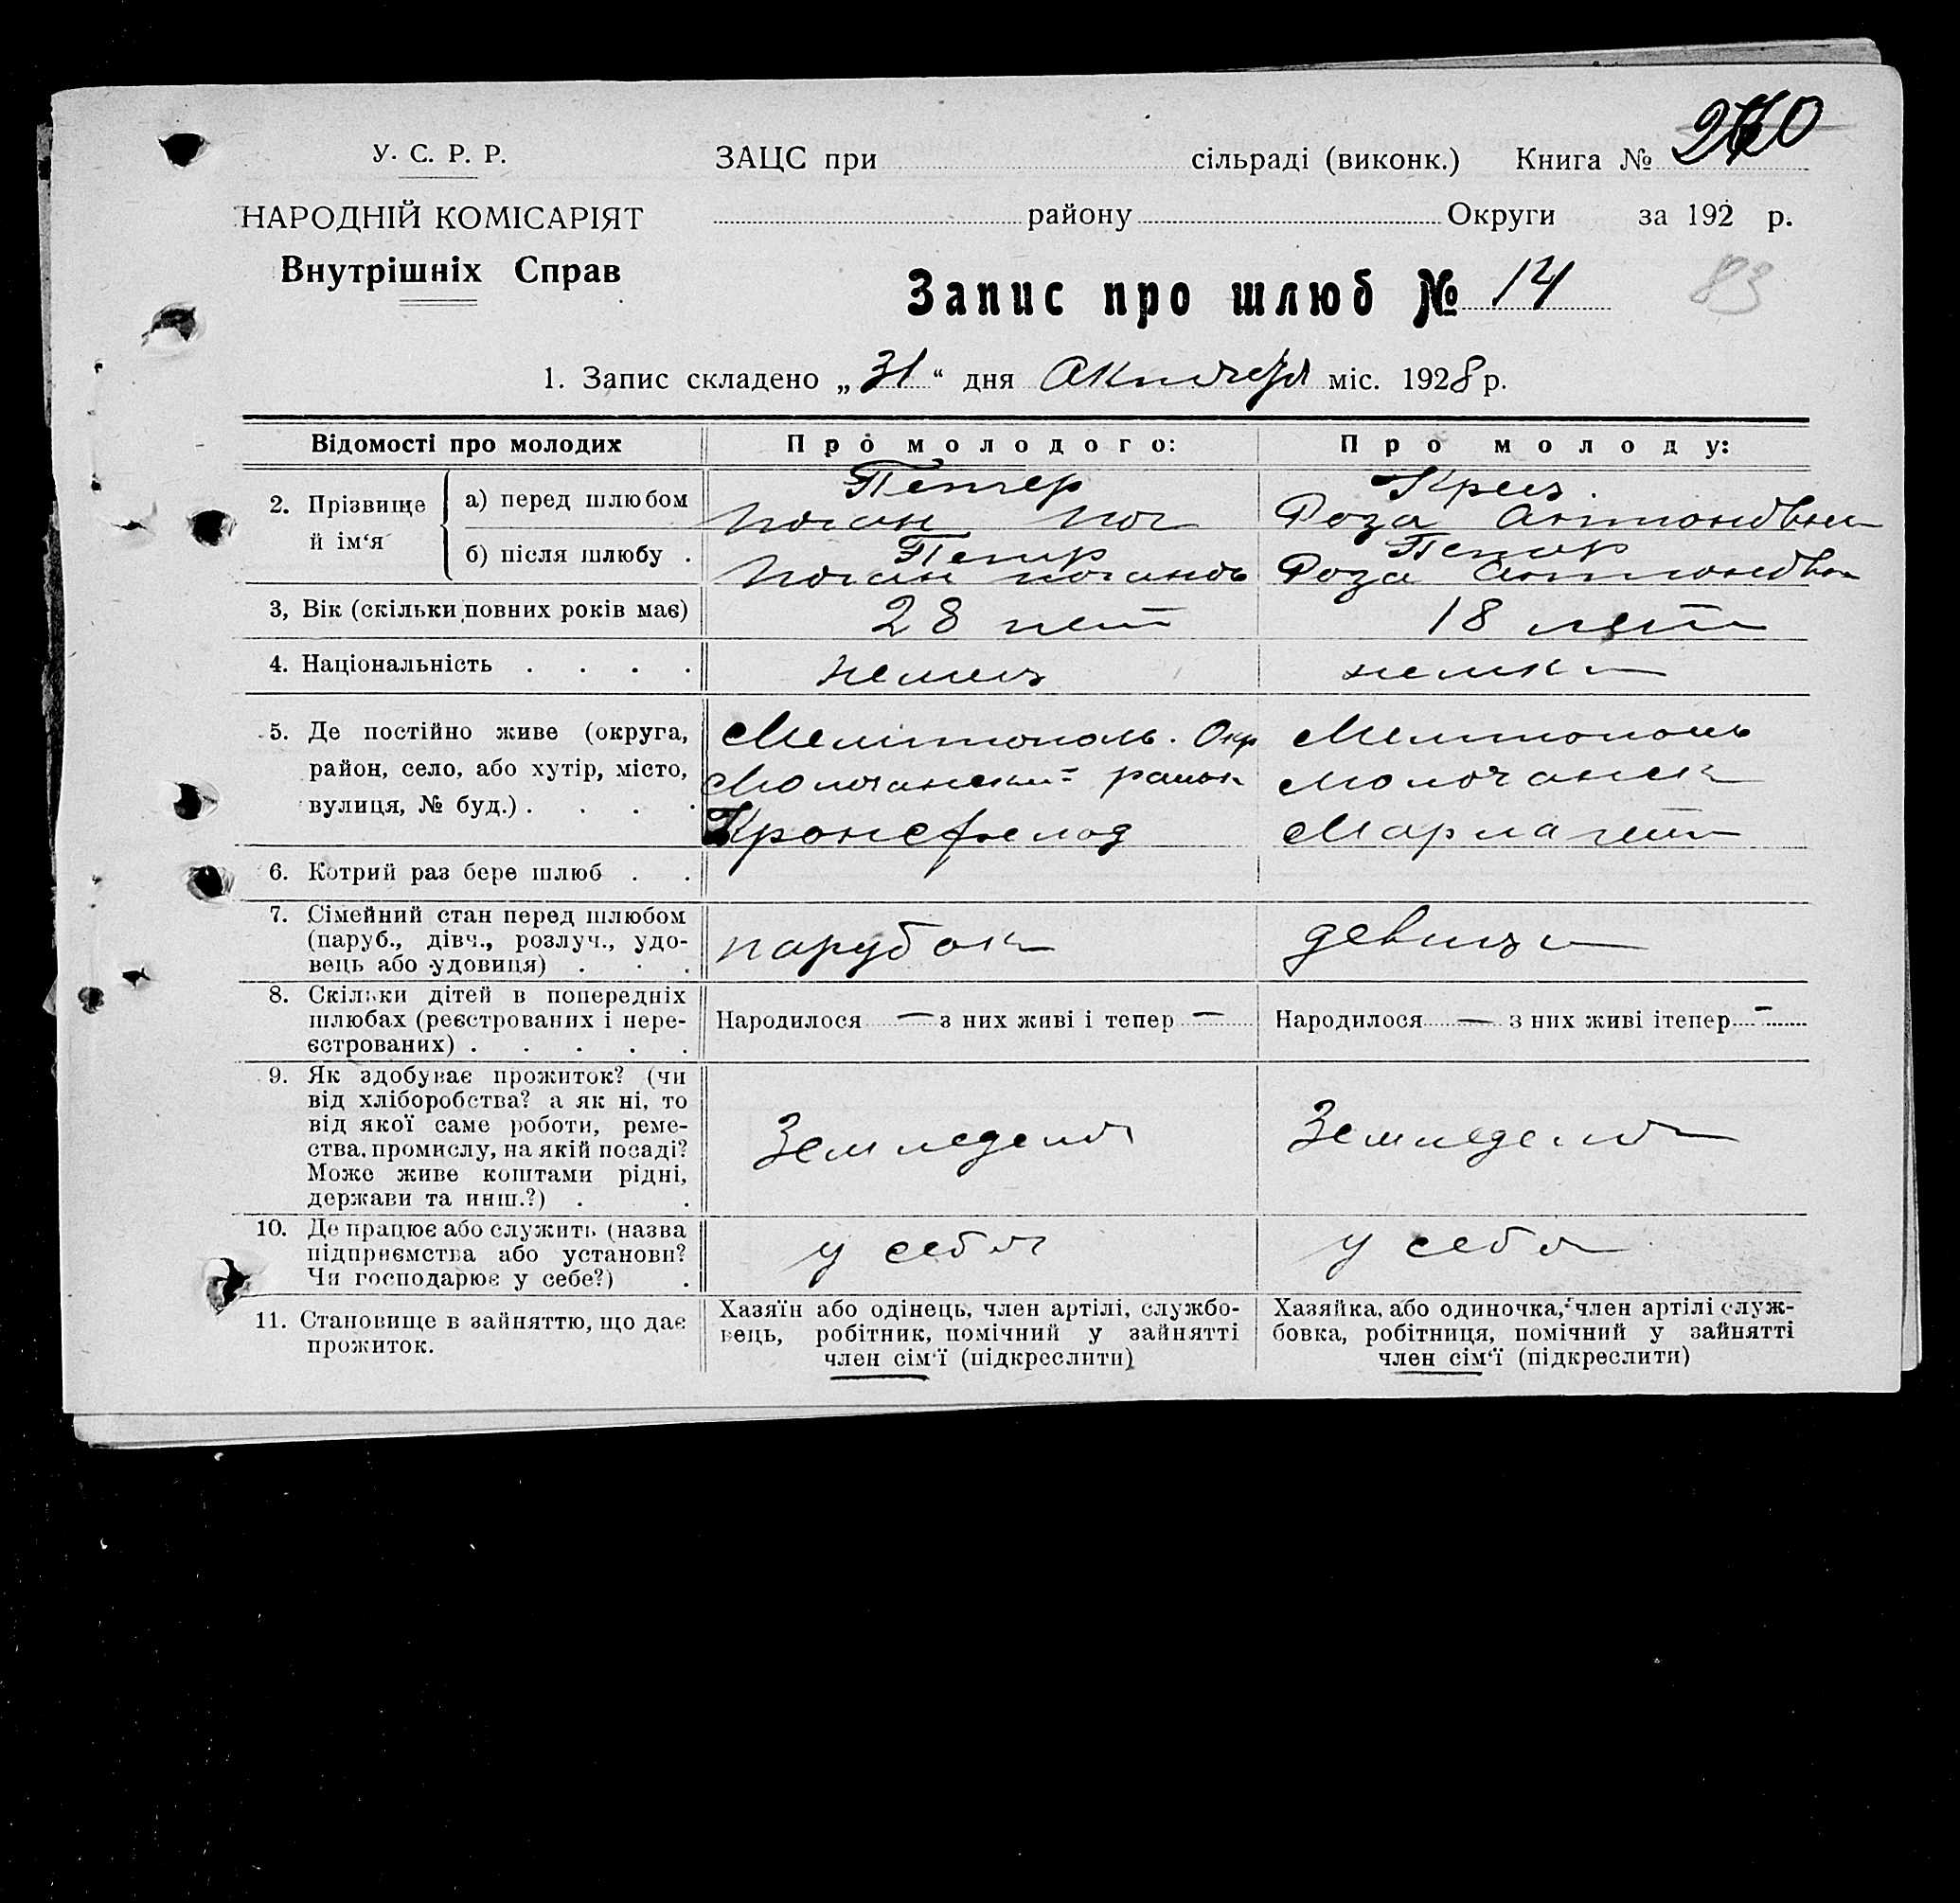 У. С. Р. Р.
НАРОДНІЙ КОМІСАРІЯТ
Внутрішніх Справ
ЗАЦС при сільраді (виконк.) Книга №
району Округи за 192 р.
Запис про шлюб № 14
83
1. Запис складено „31“ дня Октября міс. 1928 р.
Відомості про молодих Про молодого: Про молоду:
2. Прізвище й ім‘я
а) перед шлюбом Иоган Крез. Роза Антоновна
б) після шлюбу . Иоган Роза Антоновна
3, Вік (скільки повних років має) 28 лет 18 лет
4. Національність . . . . немец немка
5. Де постійно живе (округа, Мелитополь. Окр Мелитополь
район, село, або хутір, місто, Молочанский район Молочанск
вулиця, № буд.) . . . . Кронсфельд
6. Котрий раз бере шлюб . .
7. Сімейний стан перед шлюбом
(паруб., дівч., розлуч., удо- парубок девица
вець або удовиця) . . .
8. Скільки дітей в попередніх
шлюбах (реєстрованих і нере- Народилося — з них живі і тепер — Народилося — з них живі ітепер —
єстрованих) . . . . .
9. Як здобуває прожиток? (чи
від хліборобства? а як ні, то
від якої саме роботи, реме-
ства, промислу, на якій посаді? Земледел Земледел
Може живе коштами рідні,
держави та инш.?) . .
10. Де працює або служить (назва
підприємства або установи? у себя у себя
Чи господарює у себе?) .
11. Становище в зайняттю, що дає
прожиток.
Хазяїн або одінець, член артілі, службо-
вець, робітник, помічний у зайнятті
член сім‘ї (підкреслити)
Хазяйка, або одиночка, член артілі служ-
бовка, робітниця, помічний у зайнятті
член сім‘ї (підкреслити)